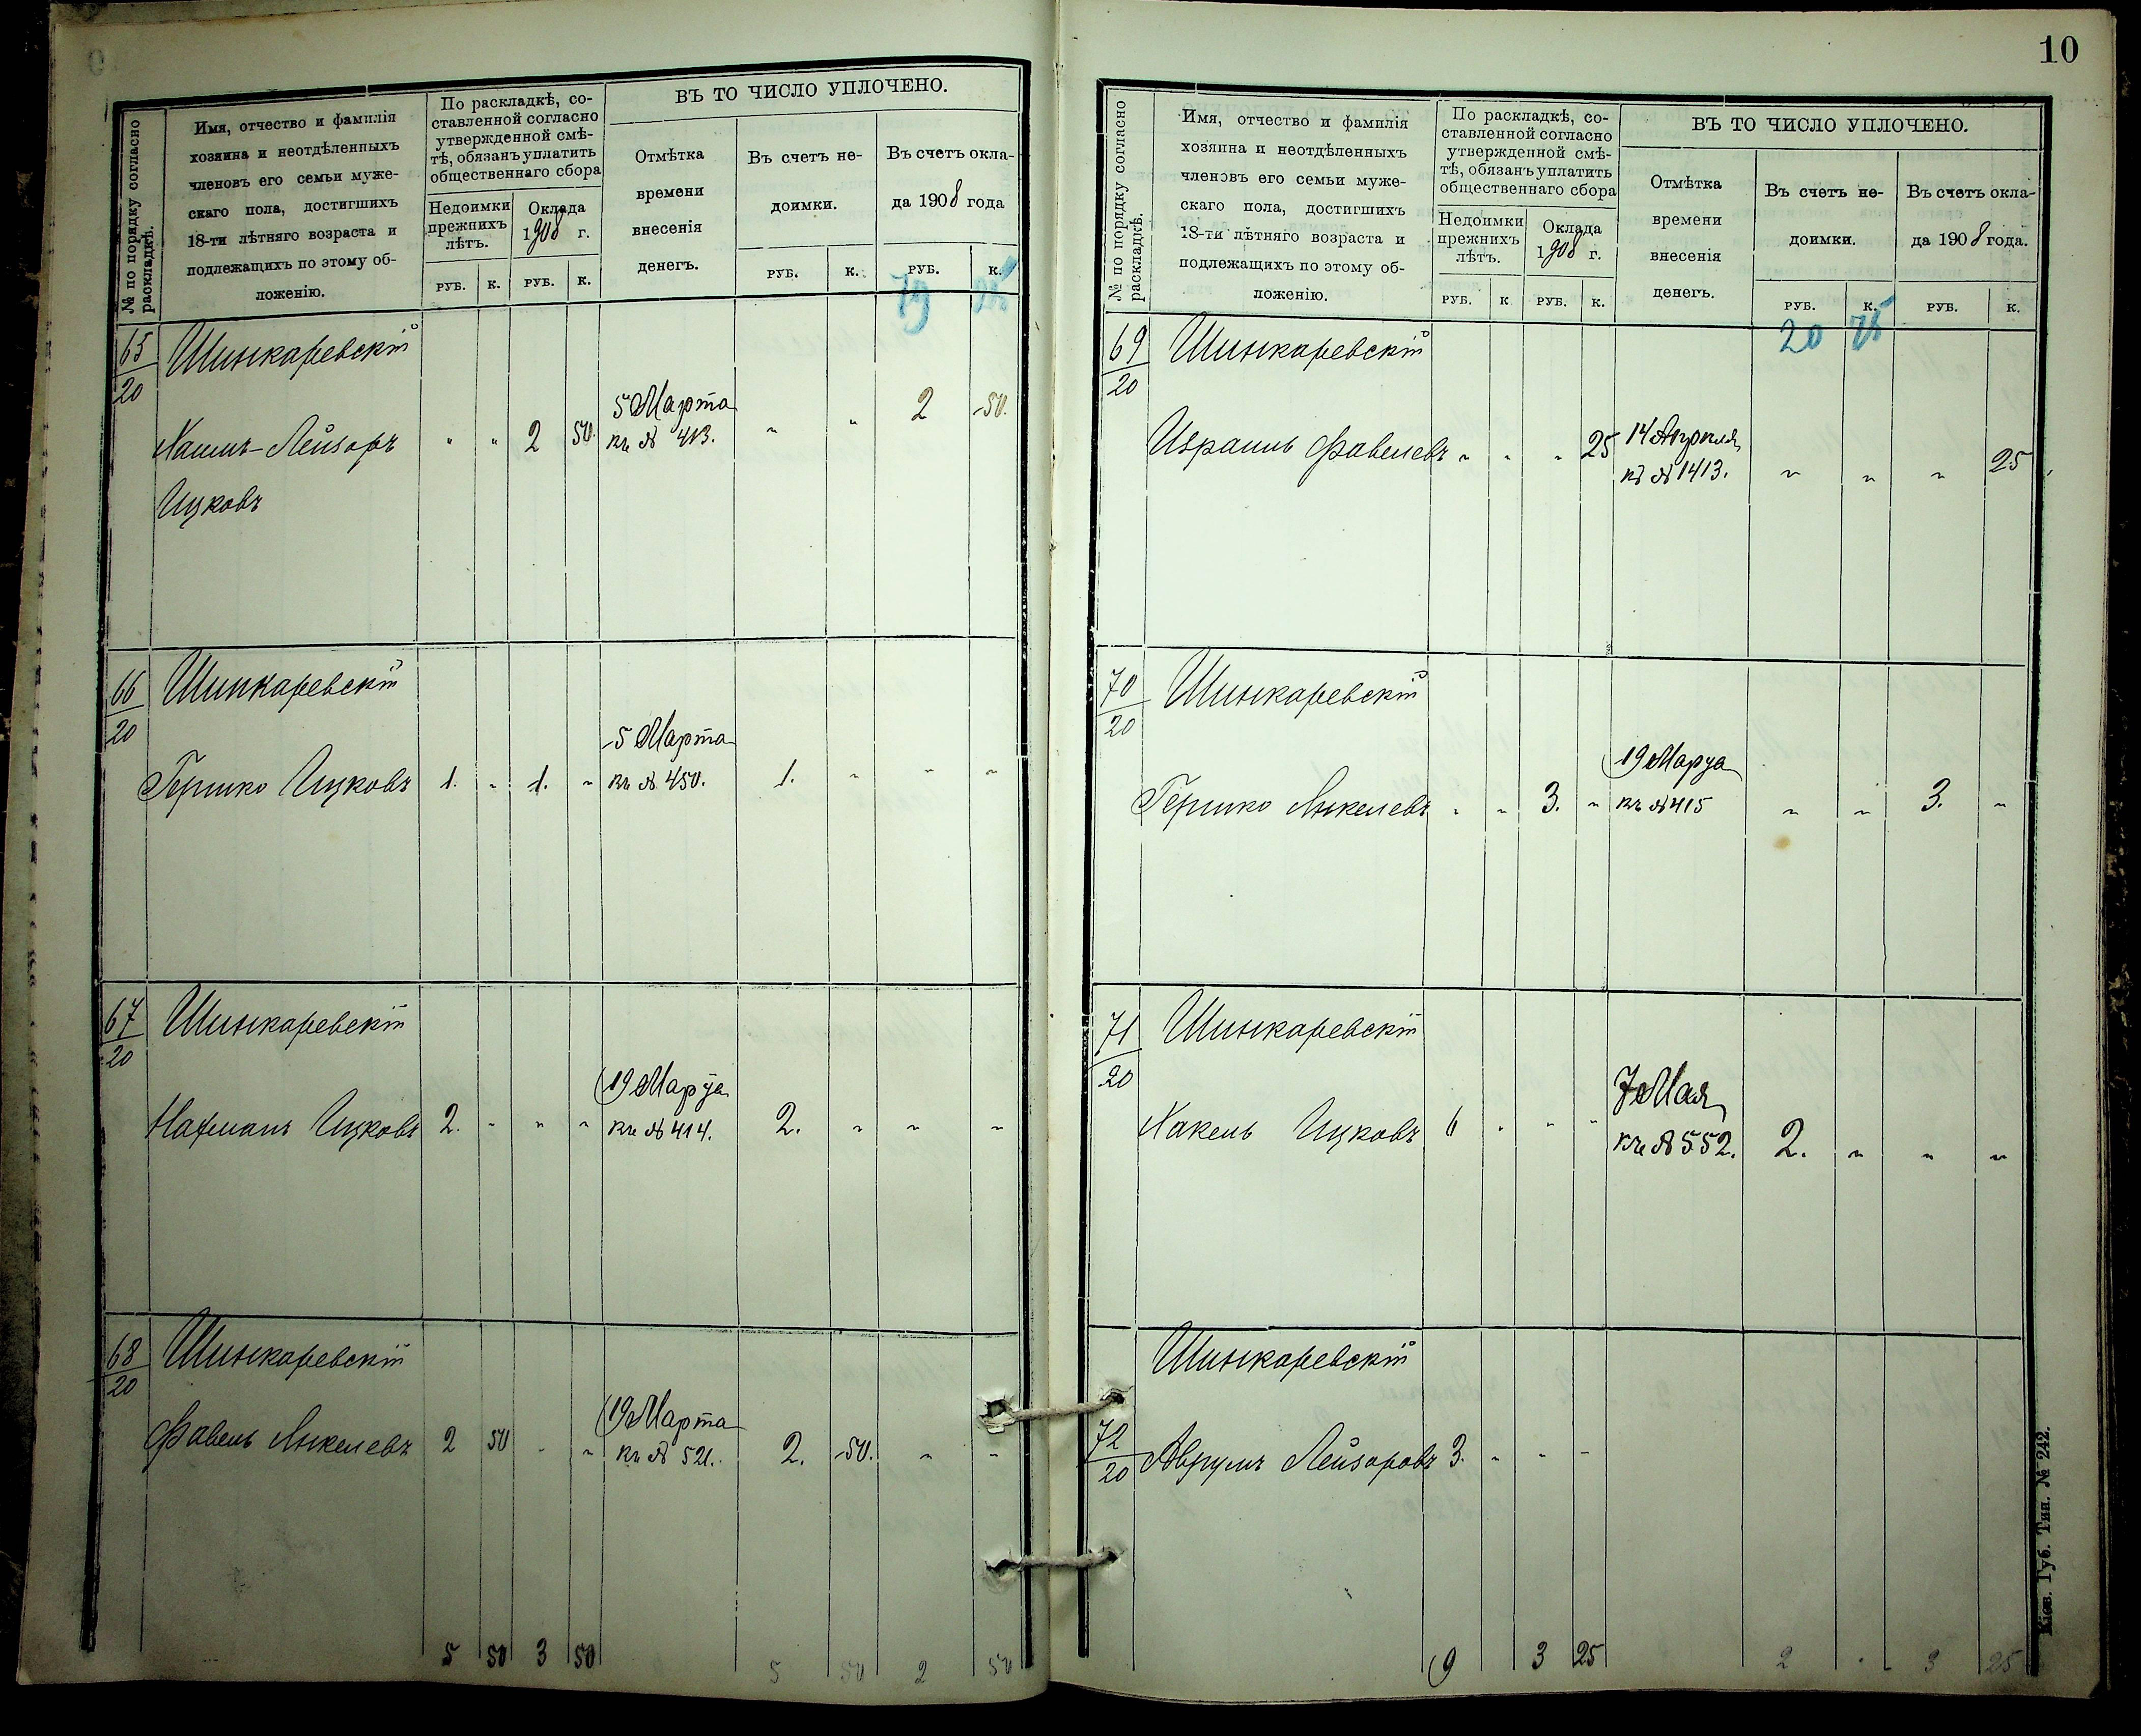 № по порядку согласно
раскладкѣ.
Имя, отчество и фамилія
хозяина и неотдѣленныхъ
членовъ его семьи муже-
скаго пола, достигшихъ
18-ти лѣтняго возраста и
подлежащихъ по этому об-
ложенію.
По раскладкѣ, со-
ставленной согласно
утвержденной смѣ-
тѣ, обязанъ уплатить
общественнаго сбора
Недоимки
прежнихъ
лѣтъ.
Оклада
1908 г.
РУБ. К. РУБ. К.
ВЪ ТО ЧИСЛО УПЛОЧЕНО.
Отмѣтка
времени
внесенія
денегъ.
Въ счетъ не-
доимки.
Въ счетъ окла-
да 1908 года
РУБ. К. РУБ. К.
65
20
Шинкаревскій
Лейзоръ
Ицковъ
" " 2 50.
5 Марта
кв № 413.
" " 2 50.
66
20
Шинкаревскій
Гершко Ицковъ 1. " 1. "
5 Марта
кв № 450.
1. " " "
67
20
Шинкаревскій
Нахманъ Ицковъ 2. " " "
19 Марта
кв № 414.
2. " " "
68
20
Шинкаревскій
Фавель Янкелевъ 2 50 " "
19 Марта
кв № 521.
2. 50. " "
5 50 3 50 5 50 2 50
10
№ по порядку согласно
раскладкѣ.
Имя, отчество и фамилія
хозяина и неотдѣленныхъ
членовъ его семьи муже-
скаго пола, достигшихъ
18-ти лѣтняго возраста и
подлежащихъ по этому об-
ложенію.
По раскладкѣ, со-
ставленной согласно
утвержденной смѣ-
тѣ, обязанъ уплатить
общественнаго сбора
Недоимки
прежнихъ
лѣтъ.
Оклада
1908 г.
РУБ. К РУБ. К.
ВЪ ТО ЧИСЛО УПЛОЧЕНО.
Отмѣтка
времени
внесенія
денегъ.
Въ счетъ не-
доимки.
Въ счетъ окла-
да 1908 года.
РУБ. К. РУБ. К.
20 75
69
20
Шинкаревскій
Израиль Фавелевъ " " " 25
14 Апреля
кв № 1413.
" " " 25
70
20
Шинкаревскій
Гершко Янкелевъ " " 3. "
19 Марта
кв № 415
" " 3. "
71
20
Шинкаревскій
Ицковъ 6 " " "
7 Мая
кв № 552.
2. " " "
Шинкаревскій
72
20
Аврумъ Лейзоровъ 3. " " "
9 3 25 2 " 3 25
Кіев. Губ. Тип. № 242.